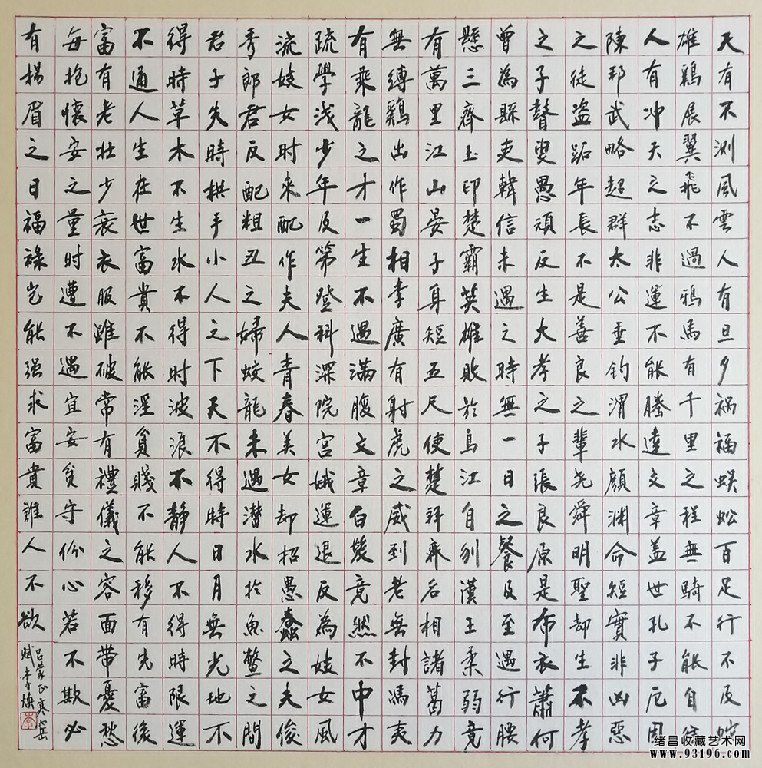 天有不測風雲人有旦夕禍福蜈蚣百足行不及蛇
雄鷄展翼飛不過鴉馬有千里之程無騎不能自往
人有冲天之志非運不能騰達文章蓋世孔子厄困
陳邦武略超群太公垂釣渭水顏淵命短實非凶惡
之徒盗跖年長不是善良之輩尧舜明聖却生不孝
之子瞽叟愚頑反生大孝之子張良原是布衣蕭何
曾為縣吏韓信未遇之時無一日之餐及至遇行腰
懸三齊上印楚霸英雄敗於烏江自刎漢王柔弱竟
有萬里江山晏子身短五尺使楚拜齊后相諸葛力
無縛鷄出作蜀相李廣有射虎之威到老無封馮夷
有乘龍之才一生不遇滿腹文章白髮竟然不中才
疏學淺少年及第登科深院宮娥運退反為妓女風
流妓女时來配作夫人青春美女却招愚蠢之夫俊
秀郎君反配粗丑之婦蛟龍未遇潜水於魚鱉之間
君子失時拱手小人之下天不得時日月無光地不
得時草木不生水不得时波浪不静人不得時限運
不通人生在世富貴不能淫貧賤不能移有先富後
富有老壯少衰衣服雖破常有禮儀之容面帶憂愁
每抱懷安之量时遭不遇宜安貧守份心若不欺必
有揚眉之日福祿岂能强求富貴誰人不欲
吕蒙正寒窑
賦
绪昌收藏艺术网
www.93196.com